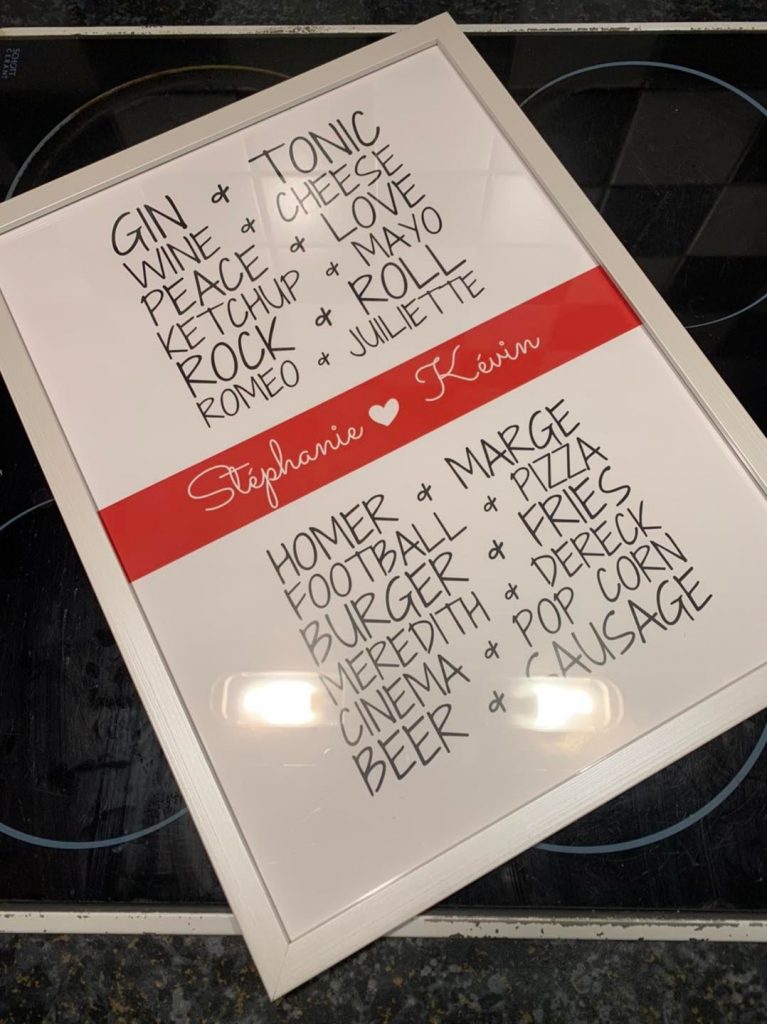 SCHOTT
CERAN
GIN & TONIC
WINE & CHEESE
PEACE & LOVE
KETCHUP & MAYO
ROCK & ROLL
ROMEO & JUILIETTE
Stéphanie ♥ Kévin
HOMER & MARGE
FOOTBALL & PIZZA
BURGER & FRIES
MEREDITH & DERECK
CINEMA & POP CORN
BEER & SAUSAGE